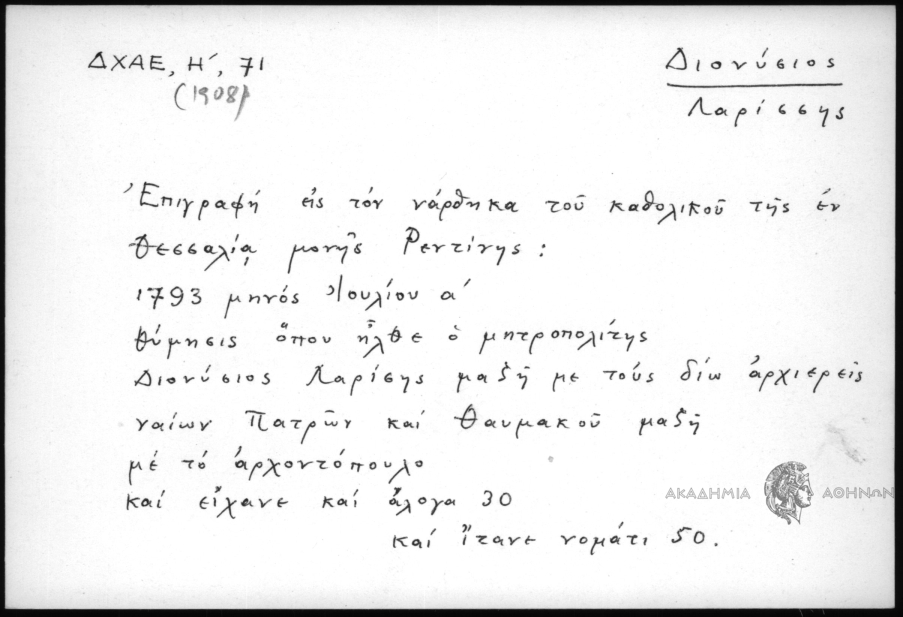 ΔΧΑΕ, Η΄, 71
(1908)
Διονύσιος
Λαρίσσης
Ἐπιγραφή εἰς τόν νάρθηκα τοῦ καθολικοῦ τῆς ἐν
Θεσσαλίᾳ μονῆς Ρεντίνης :
1793 μηνός Ἰουλίου α΄
θύμησις ὅπου ἦλθε ὁ μητροπολίτης
Διονύσιος Λαρίσης μαζῆ με τούς δίω ἀρχιερεῖς
ναίων Πατρῶν καί Θαυμακοῦ μαζῆ
μέ τό ἀρχοντόπουλο
καί εἴχανε καί ἄλογα 30
καί ἴτανε νομάτι 50.
ΑΚΑΔΗΜΙΑ ΑΘΗΝΩΝ